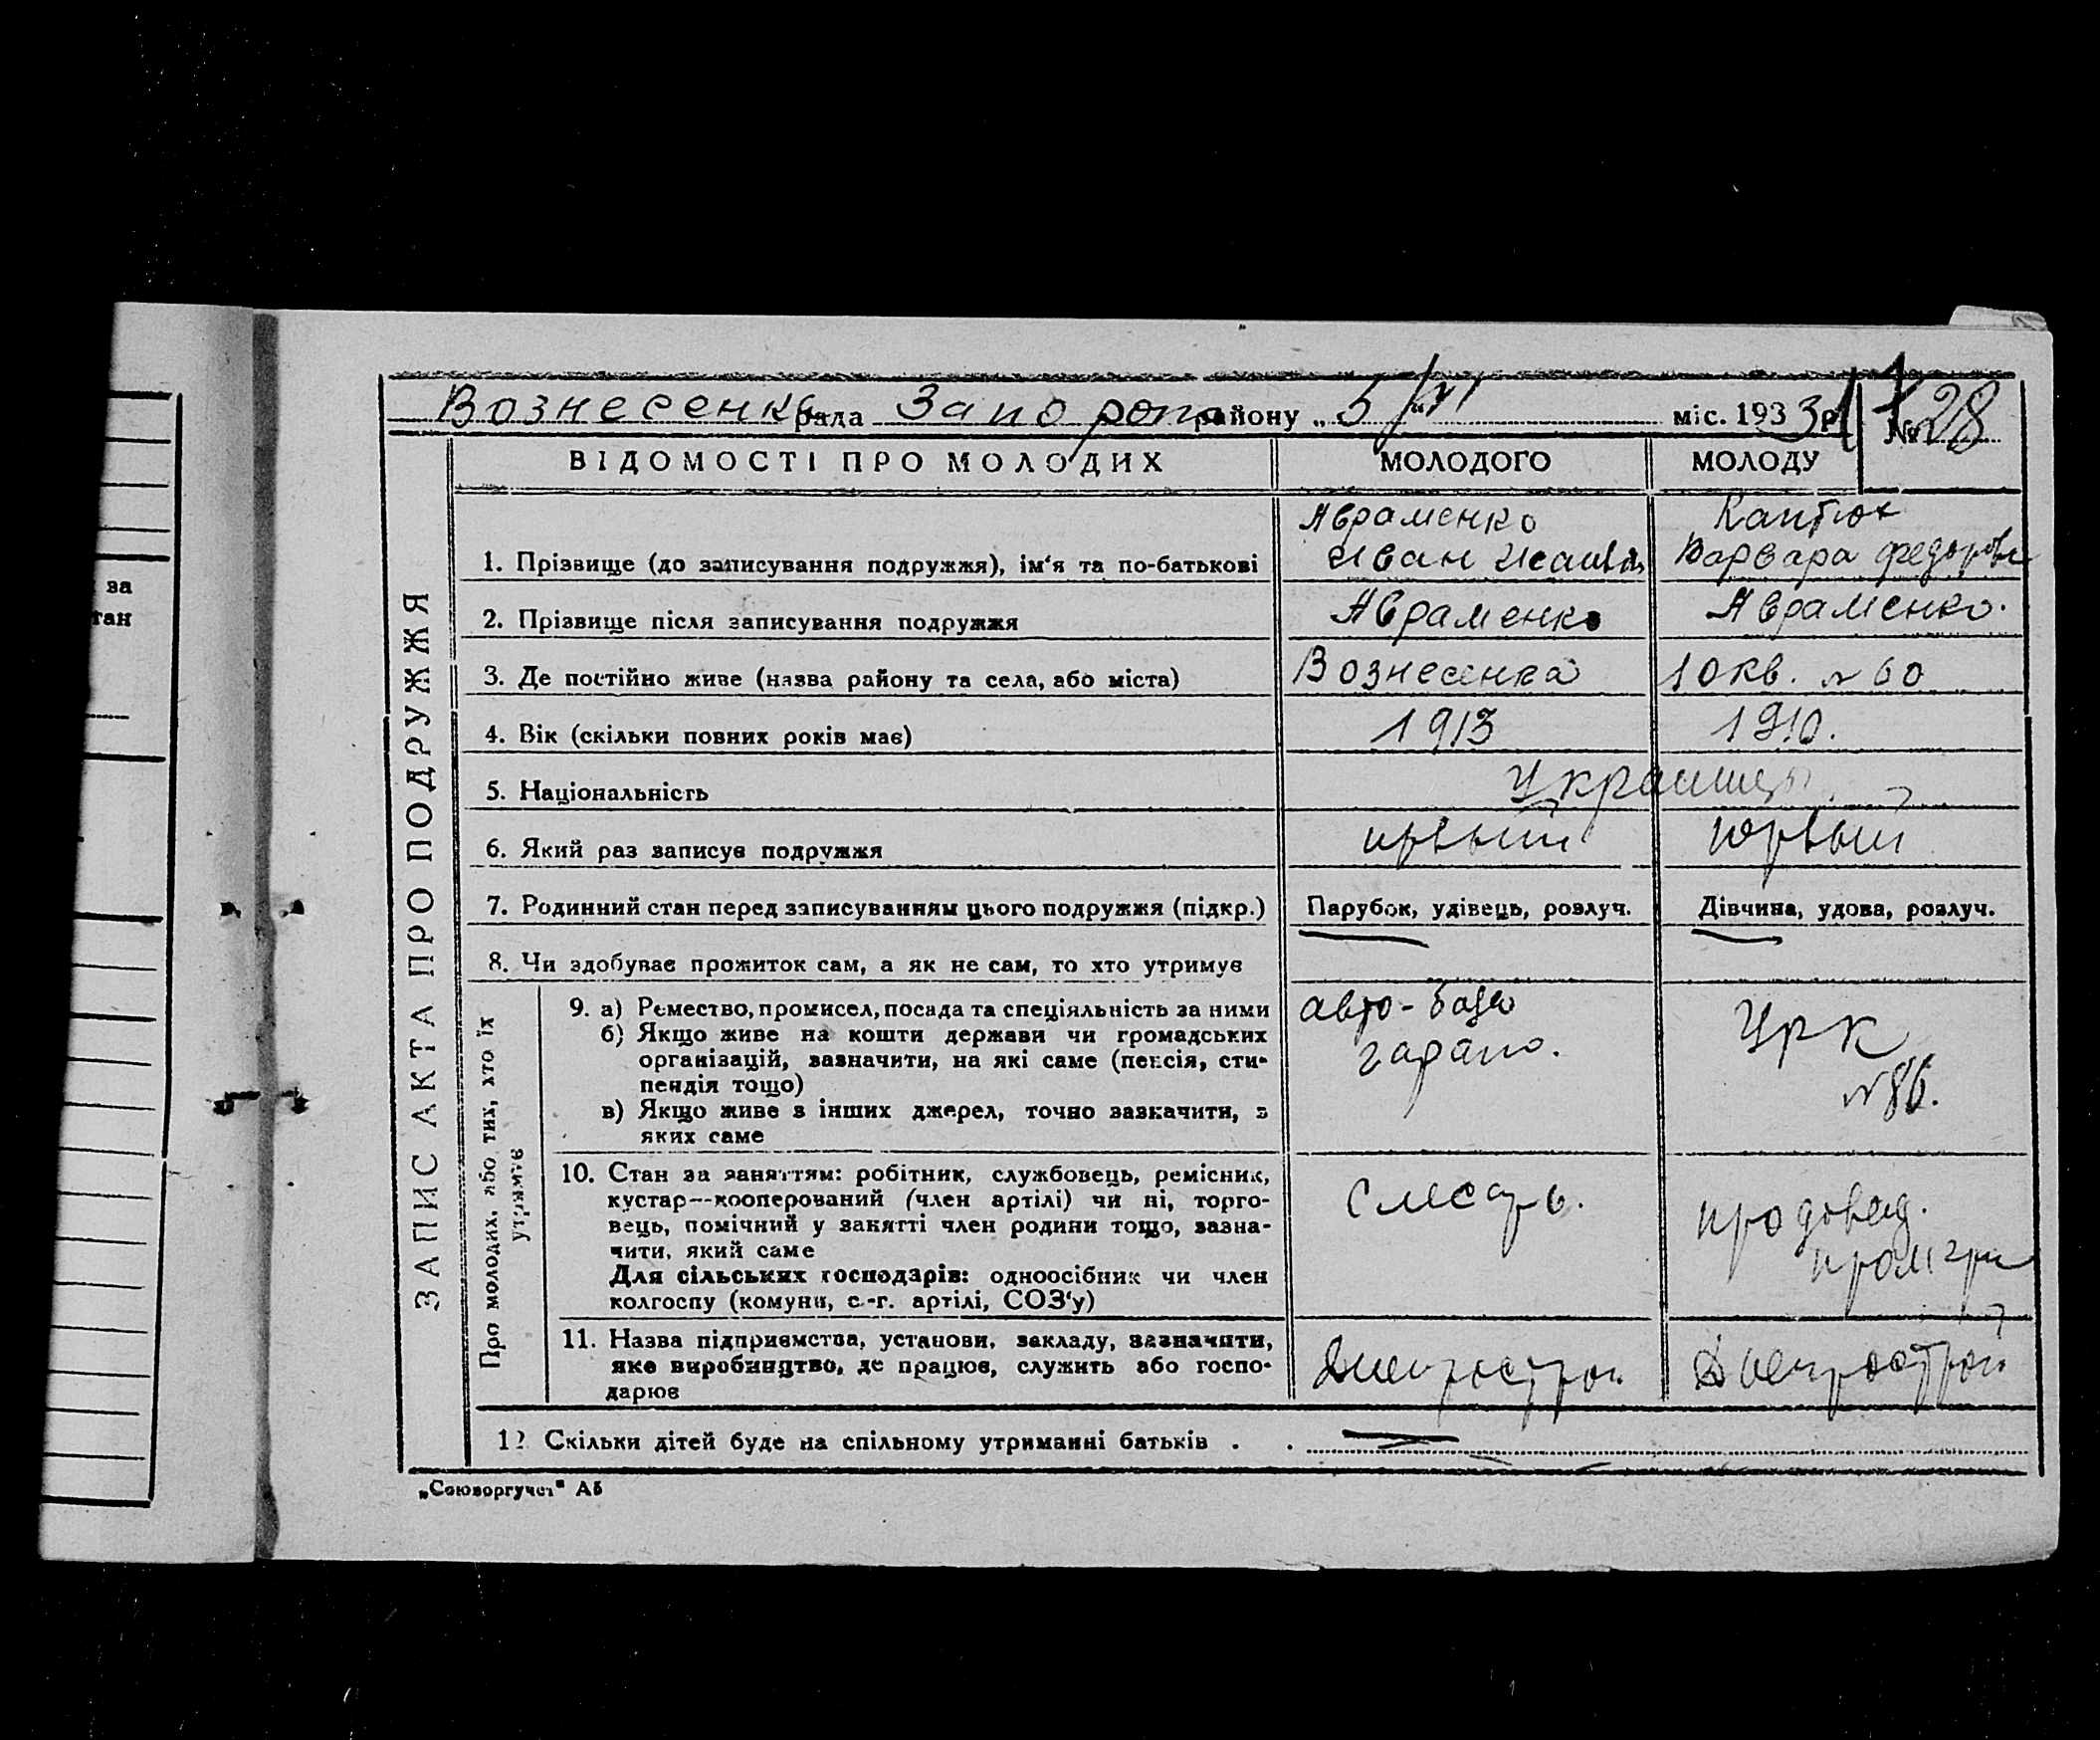 за
тан
Вознесенка рада Запорож району „5/VI" міс. 1933 р. № 28
ЗАПИС АКТА ПРО ПОДРУЖЖЯ
ВІДОМОСТІ ПРО МОЛОДИХ МОЛОДОГО МОЛОДУ
Авраменко
1. Прізвище (до записування подружжя), ім'я та по-батькові Иван Варвара Федоровн
2. Прізвище після записування подружжя Авраменко Авраменко.
3. Де постійно живе (назва району та села, або міста) Вознесенка 10 кв. № 60
4. Вік (скільки повних років має) 1913 1910.
5. Національність Украинцы
6. Який раз записує подружжя
7. Родинний стан перед записуванням цього подружжя (підкр.) Парубок, удівець, розлуч. Дівчина, удова, розлуч.
8. Чи здобуває прожиток сам, а як не сам, то хто утримує
Про молодих, або тих, хто їх
утримує
9. а) Ремество, промисел, посада та спеціяльність за ними авто-база
б) Якщо живе на кошти держави чи громадських
організацій, зазначити, на які саме (пенсія, сти-
пендія тощо)
в) Якщо живе з інших джерел, точно зазначити, з
яких саме
гараж.
црк
№ 86.
10. Стан за заняттям: робітник, службовець, ремісник,
кустар—кооперований (член артілі) чи ні, торго-
вець, помічний у занятті член родини тощо, зазна-
чити, який саме
Для сільських господарів: одноосібник чи член
колгоспу (комуни, с.-г. артілі, СОЗ'у)
Слесарь.
11. Назва підприємства, установи, закладу, зазначити,
яке виробництво, де працює, служить або госпо-
дарює
Днепрострой Днепрострой
12 Скільки дітей буде на спільному утриманні батьків . .
„Союзоргучет" А5